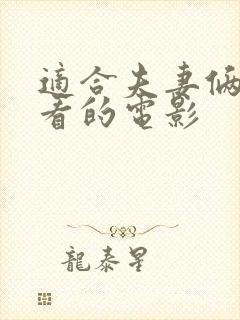 適合夫妻倆
看的電影
龍泰星